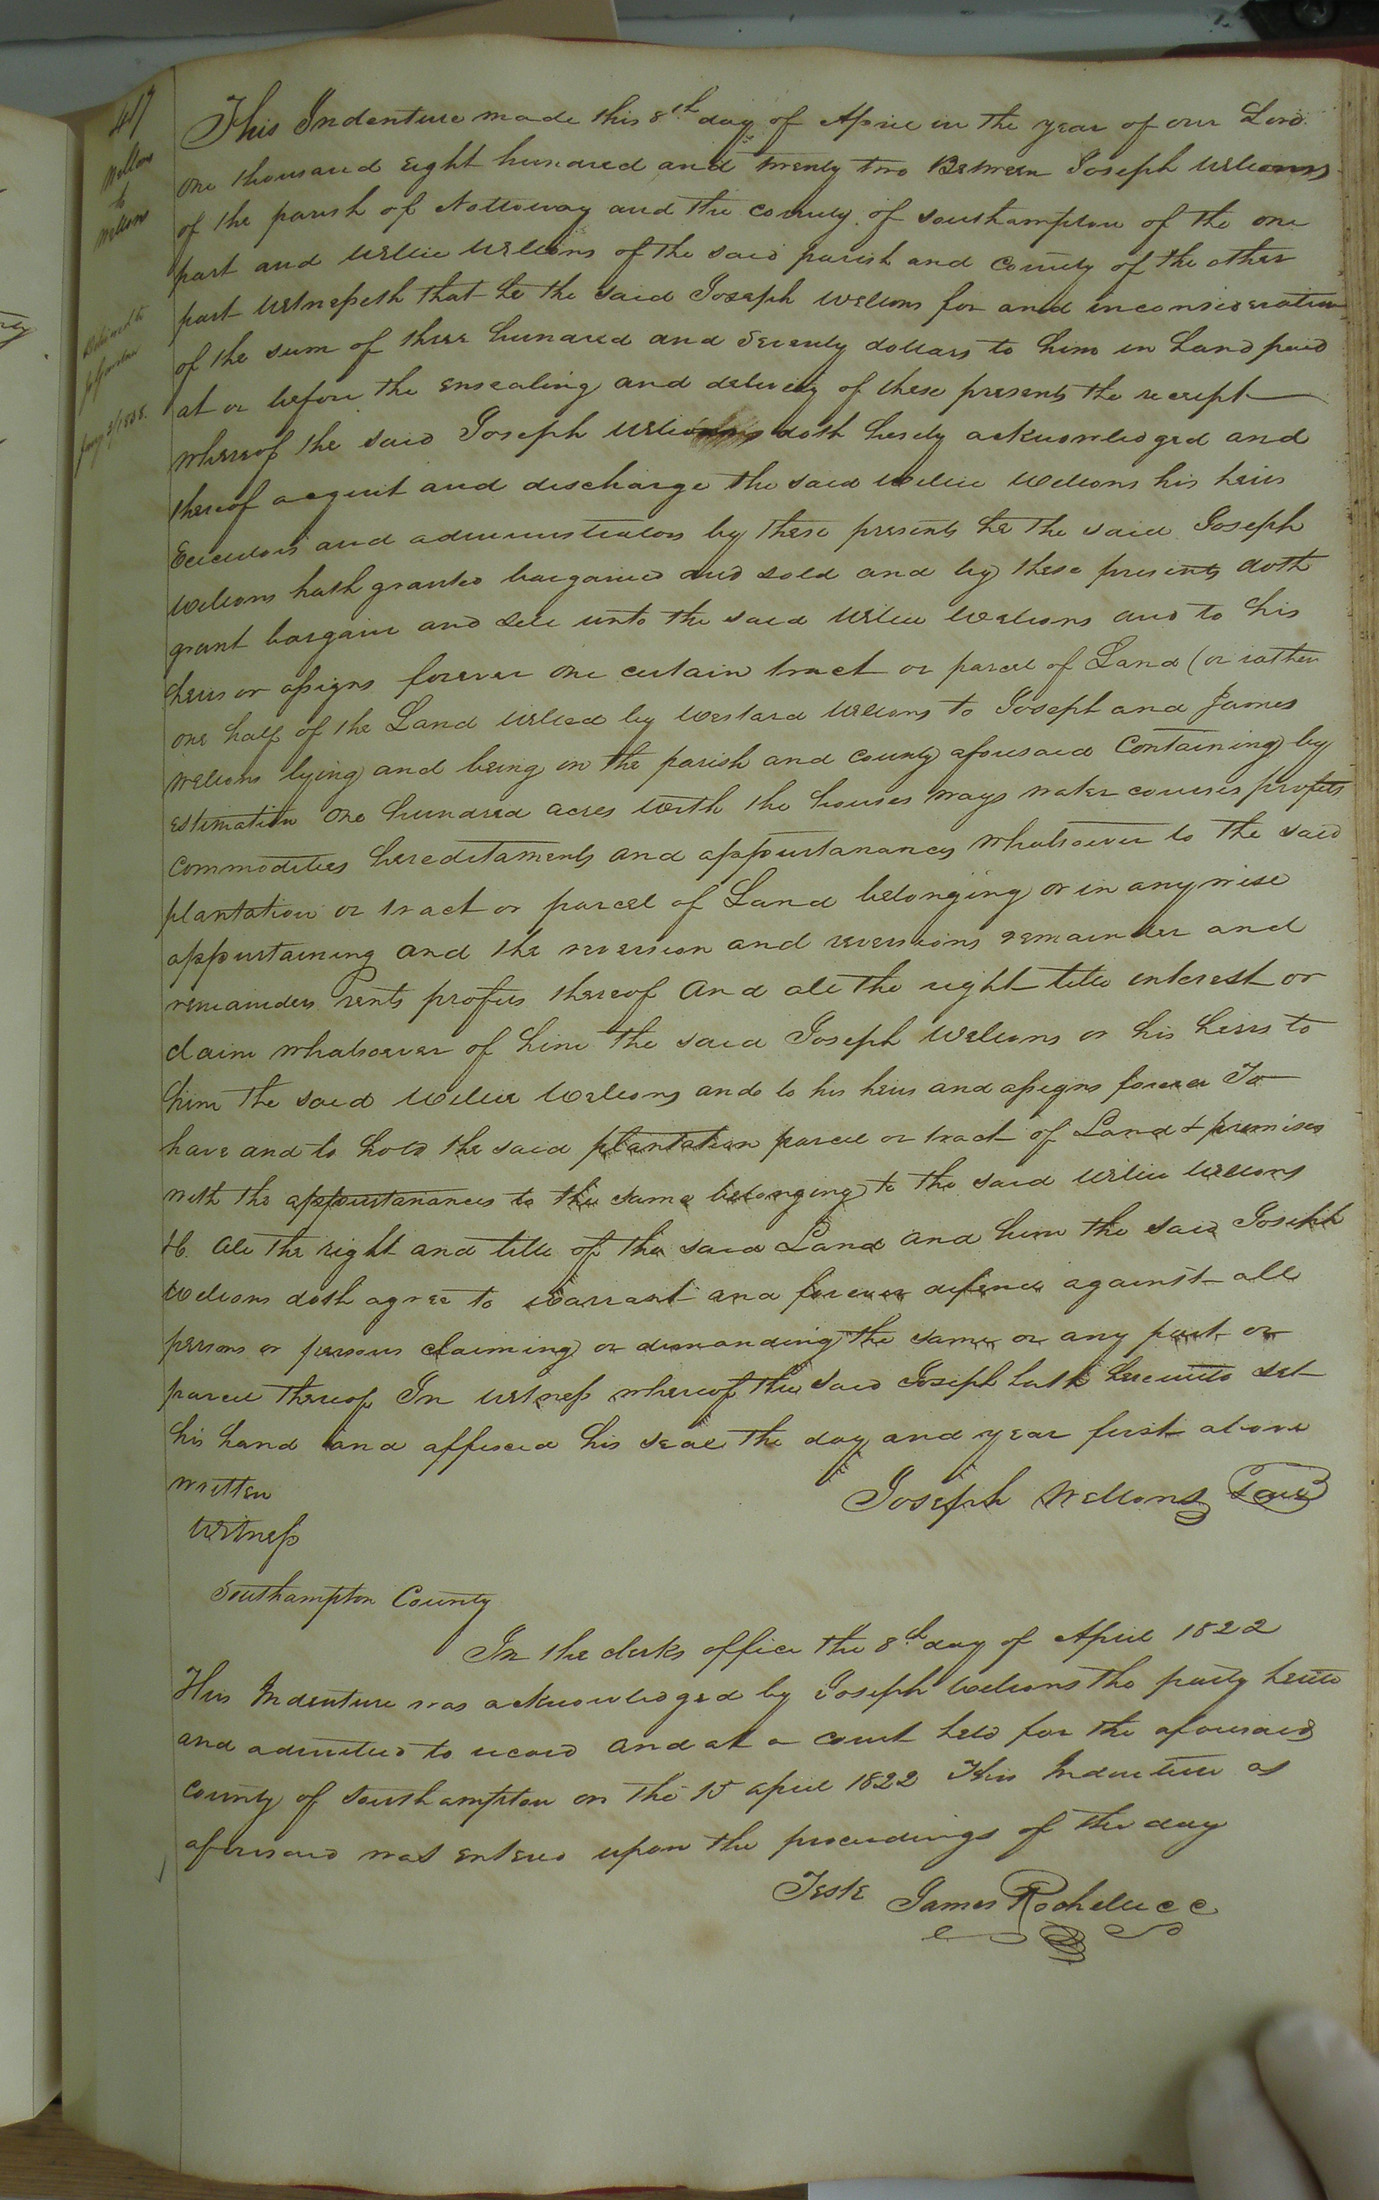 417
Wellons
to
Wellons
Delivered to
Jany 2/1838.
This Indenture made this 8th day of April in the year of our Lord
one thousand eight hundred and twenty two Between Joseph Wellons
of the parish of Nottoway and the county of Southampton of the one
part and Willie Wellons of the said parish and county of the other
part Witnesseth that he the said Joseph Wellons for and in consideration
of the sum of three hundred and Seventy dollars to him in hand paid
at or before the ensealing and delivery of these presents the receipt
whereof the said Joseph Wellons doth hereby acknowledged and
thereof acquit and discharge the said Willie Wellons his heirs
Executors and administrators by these presents he the said Joseph
Wellons hath granted bargained and sold and by these presents doth
grant bargain and sell unto the said Willie Wellons and to his
heirs or assigns forever one certain tract or parcel of Land (or rather
one half of the Land Willed by Westard Wellons to Joseph and James
Wellons lying and being in the parish and county aforesaid Containing by
estimation one hundred acres with the houses ways water courses profits
commodities hereditaments and appurtanancys whatsoever to the said
plantation or tract or parcel of Land belonging or in any wise
appurtaining and the reversion and reversions remainder and
remainders rents profits thereof and all the right title interest or
claim whatsoever of him the said Joseph Wellons or his heirs to
him the said Willie Wellons and to his heirs and assigns forever To
have and to hold the said plantation parcel or tract of Land & premises
with the appurtanances to the same belonging to the said Willie Wellons
&c. all the right and title of the said Land and him the said Joseph
Wellons doth agree to warrant and forever defend against all
persons or persons claiming or demanding the same or any part or
parcel thereof In witness whereof the said Joseph hath hereunto set
his hand and affixed his seal the day and year first above
written
Joseph Wellons Seal
Witness
Southampton County
In the clerks office the 8th day of April 1822
This Indenture was acknowledged by Joseph Wellons the party hereto
and admitted to record and at a court held for the aforesaid
county of Southampton on the 15 april 1822 This Indenture as
aforesaid was entered upon the proceedings of the day
Teste James Rochelle c c